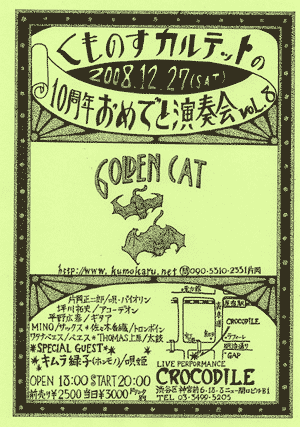 くものすカルテットの
2008.12.27(SAT)
10周年おめでと演奏会 VOL.8
GOLDEN CAT
http://www.kumokaru.net 090-5310-2351 片岡
片岡正二郎/唄・バイオリン
坪川拓史/アコーデオン
平野広恭/ギタア
MINO/ザックス*佐々木香織/トロンボイン
ワタナベエス/ベエス*THOMAS上原/太鼓
*SPECIAL GUEST*
キムラ緑子(ホンモノ)唄姫
OPEN 18:00 START 20:00
前売り¥2500 当日¥3000
原宿駅
明治通り
CROCODILE
GAP
LIVE PERFORMANCE
CROCODILE
渋谷区神宮前6-18-8ニュー関口ビルB1
TEL 03-3499-5205